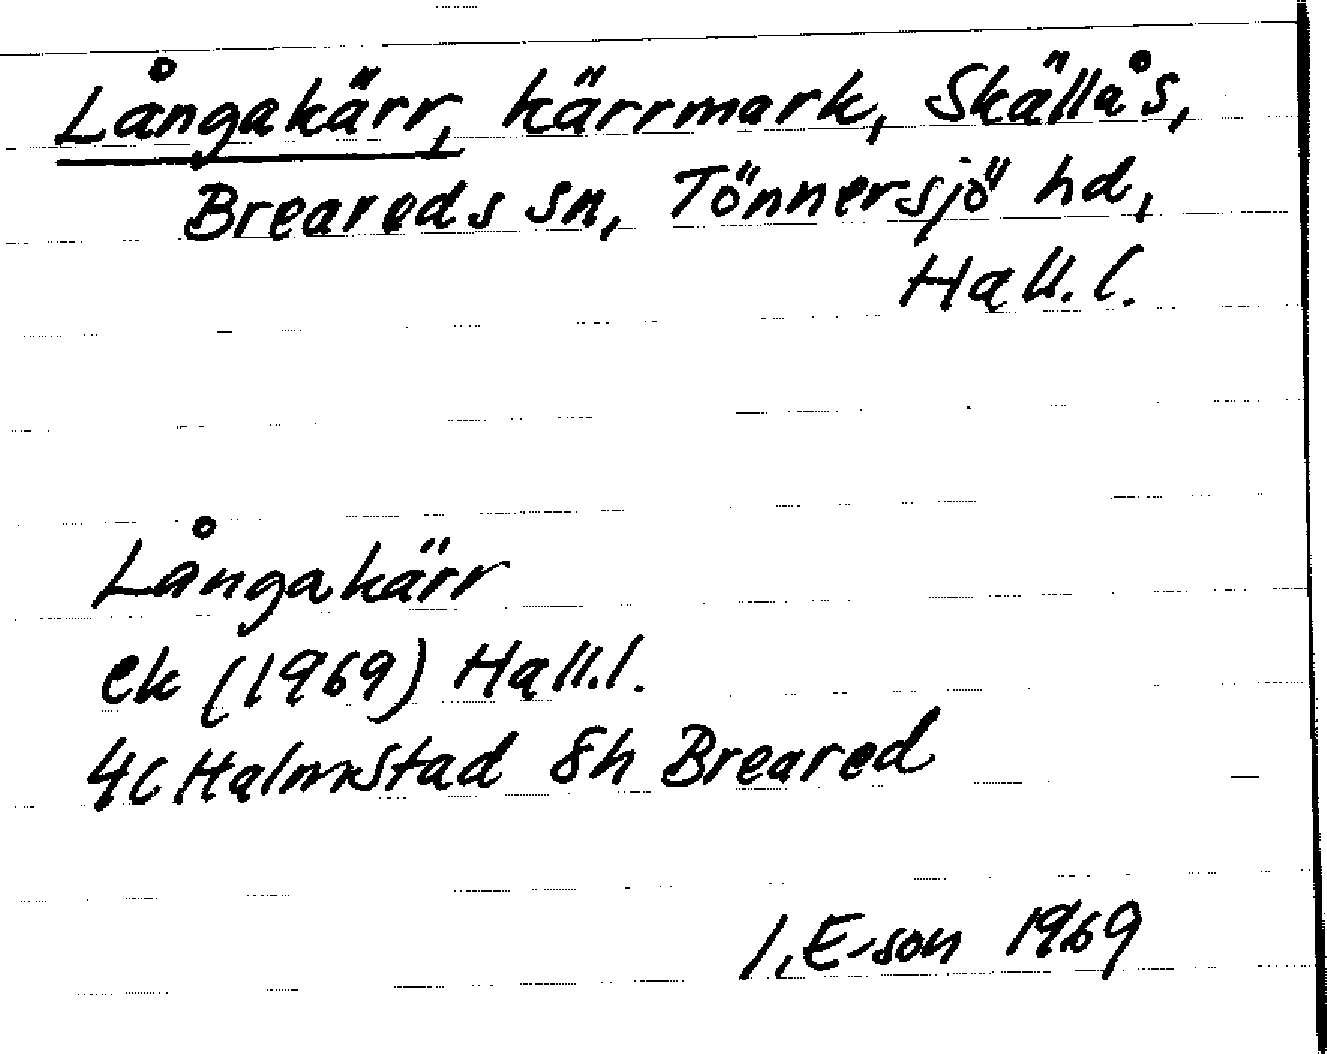 Långakärr, kärrmark, Skällås,
Breareds sn, Tönnersjö hd,
Hall.l.
Långakärr
ek (1969) Hall.l.
4C Halmstad 8h Breared
I.E-son 1969